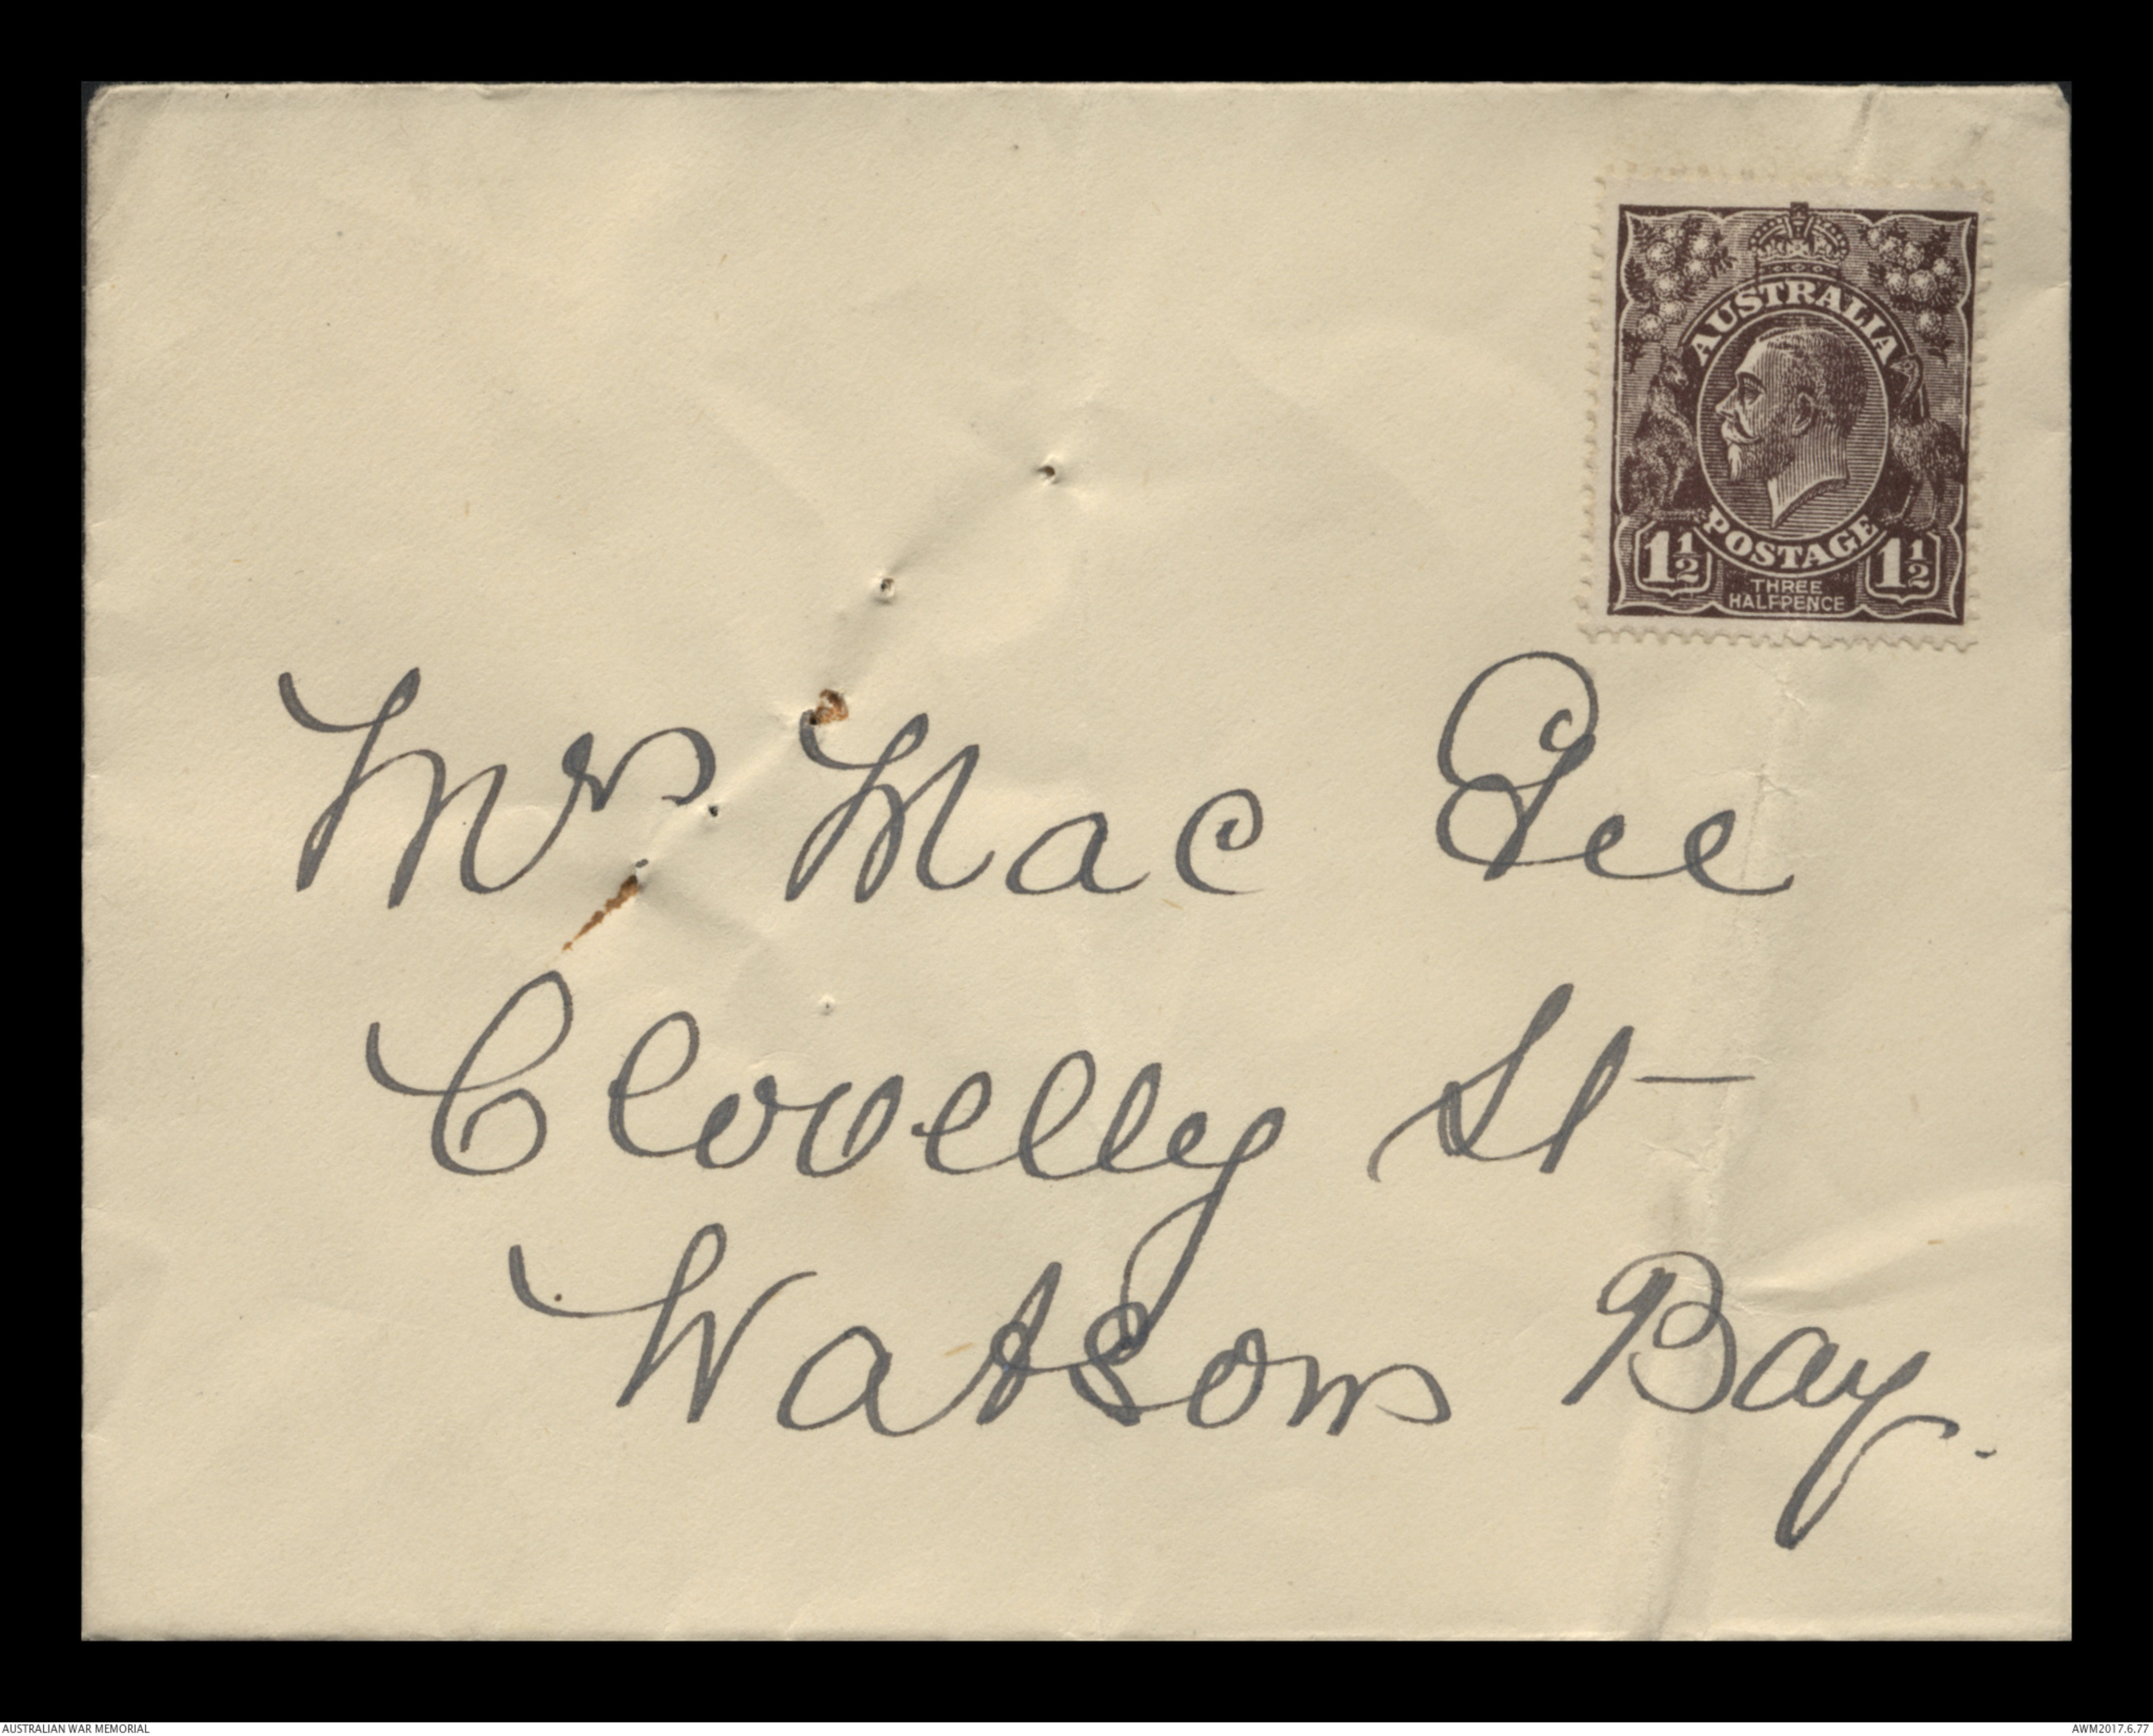 AUSTRALIA
POSTAGE
1½ 1½
THREE
HALFPENCE
Mrs. Mac Gee
Clovelly St
Watsons Bay.
AUSTRALIAN WAR MEMORIAL
AWM2017.6.77